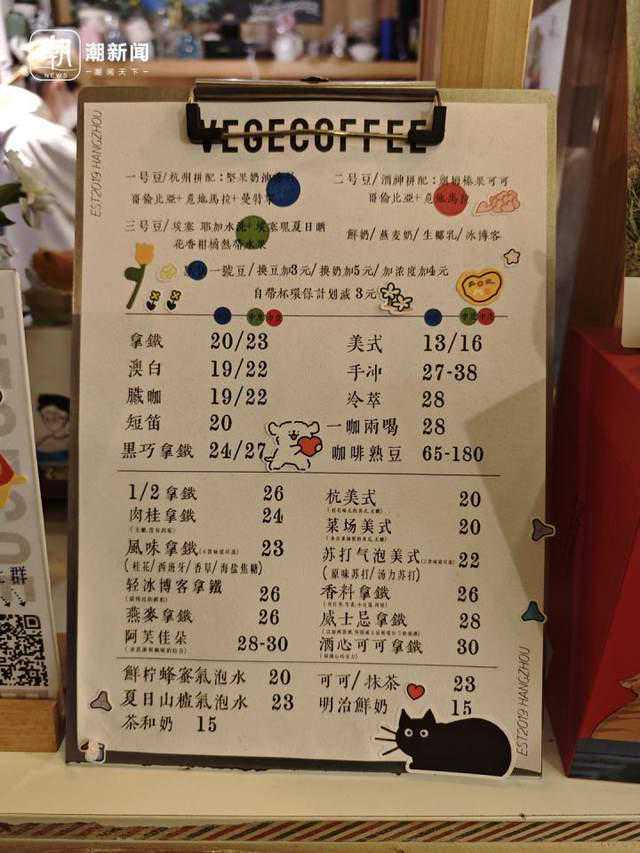 潮 NEWS
潮新闻
VEGECOFFEE
EST2019 HANGZHOU
一号豆/杭州拼配:堅果奶油
哥倫比亞+危地馬拉+曼特寧
二号豆/酒神拼配:朗姆榛果可可
哥倫比亞+危地馬拉
三号豆/埃塞 耶加水洗+埃塞
夏日晒
花香柑橘熱帶水果
鮮奶/燕麦奶/生椰乳/冰博客
一號豆/换豆加3元/换奶加5元/加浓度加4元
自帶杯環保計划減 3元
拿鐵 20/23
澳白 19/22
臟咖 19/22
短笛 20
黑巧拿鐵 24/27
美式 13/16
手冲 27-38
冷萃 28
一咖兩喝 28
咖啡熟豆 65-180
1/2拿鐵 26
肉桂拿鐵 24
風味拿鐵 23
(桂花/西班牙/香草/海盐焦糖)
轻冰博客拿鐵 26
燕麥拿鐵 26
阿芙佳朵 28-30
杭美式 20
菜场美式 20
苏打气泡美式 22
(原味苏打/汤力苏打)
香料拿鐵 26
威士忌拿鐵 28
酒心可可拿鐵 30
鮮柠蜂蜜氣泡水 20
夏日山楂氣泡水 23
茶和奶 15
可可/抹茶 23
明治鮮奶 15
EST2019 HANGZHOU